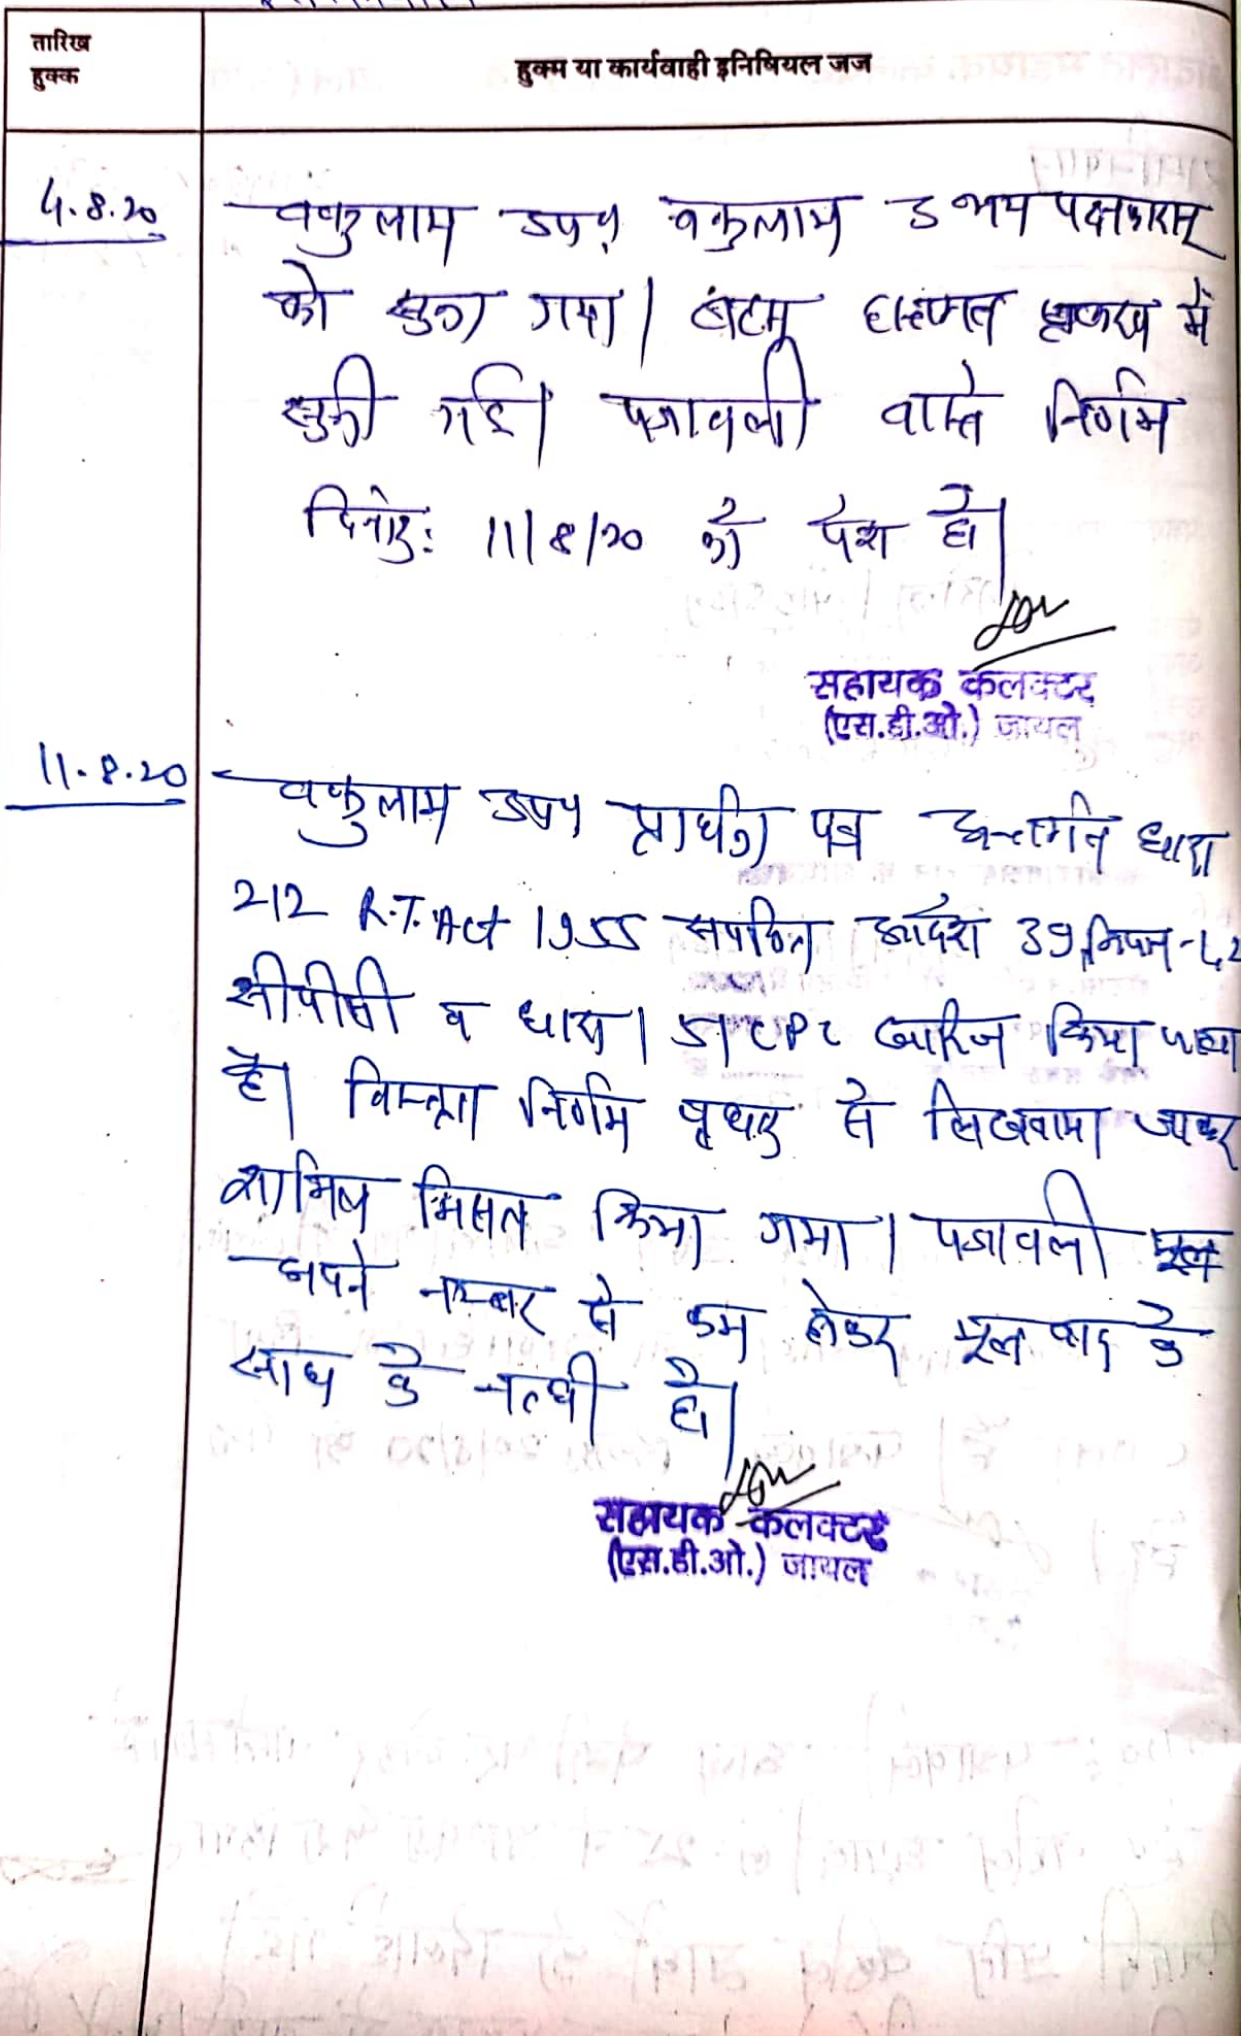 तारिख
हुक्क
हुक्म या कार्यवाही इनिषियल जज
4.8.20
वकुलाम उप० वकुलाम उभय पक्षकारान्
को सुना गया। बहस में
सुनी गई। पत्रावली वास्ते निर्णय
दिनांक: 11/8/20 को पेश हो।
सहायक कलक्टर
(एस.डी.ओ.) जायल
11.8.20
वकुलाम उप० प्रार्थना पत्र अन्तर्गत धारा
212 R.T. Act 1955 सपठित आदेश 39, नियम-1,2
सीपीसी व धारा 151 CPC खारिज किया गया
है। विस्तृत निर्णय पृथक से लिखवाया जाकर
शामिल मिसल किया गया। पत्रावली
अपने नम्बर से कम होकर मूल वाद के
साथ के नत्थी हो।
सहायक कलक्टर
(एस.डी.ओ.) जायल